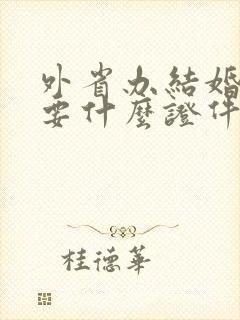 外省办結婚
要什麼證件
桂德華